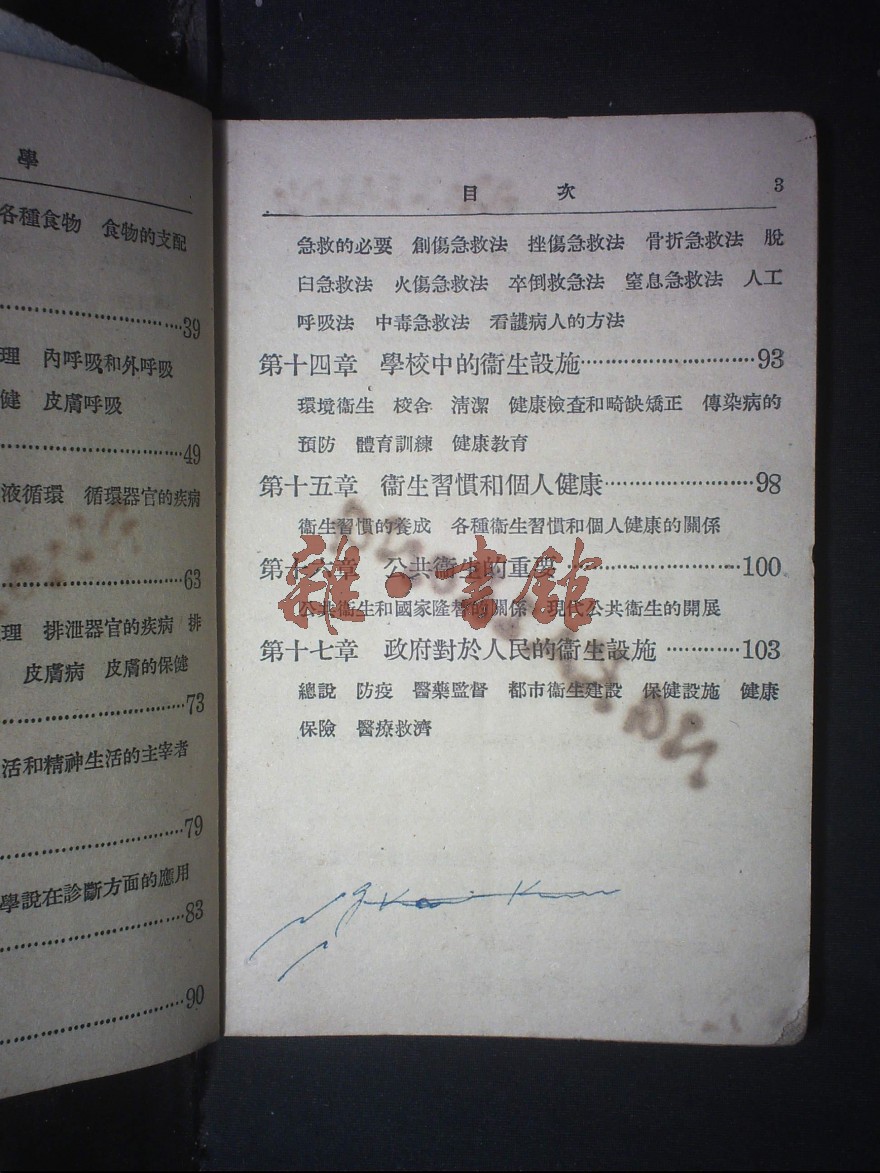 學
各種食物　食物的支配
39
理　內呼吸和外呼吸
健　皮膚呼吸
49
液循環　循環器官的疾病
63
理　排泄器官的疾病　排
皮膚病　皮膚的保健
73
活和精神生活的主宰者
79
學說在診斷方面的應用
83
90
目　次　3
急救的必要　創傷急救法　挫傷急救法　骨折急救法　脫
臼急救法　火傷急救法　卒倒救急法　窒息急救法　人工
呼吸法　中毒急救法　看護病人的方法
第十四章　學校中的衞生設施…………………………93
環境衞生　校舍　清潔　健康檢查和畸缺矯正　傳染病的
預防　體育訓練　健康教育
第十五章　衞生習慣和個人健康……………………98
衞生習慣的養成　各種衞生習慣和個人健康的關係
第十六章　公共衞生的重要…………………………100
公共衞生和國家隆替的關係　現代公共衞生的開展
第十七章　政府對於人民的衞生設施…………103
總說　防疫　醫藥監督　都市衞生建設　保健設施　健康
保險　醫療救濟
雜·書館